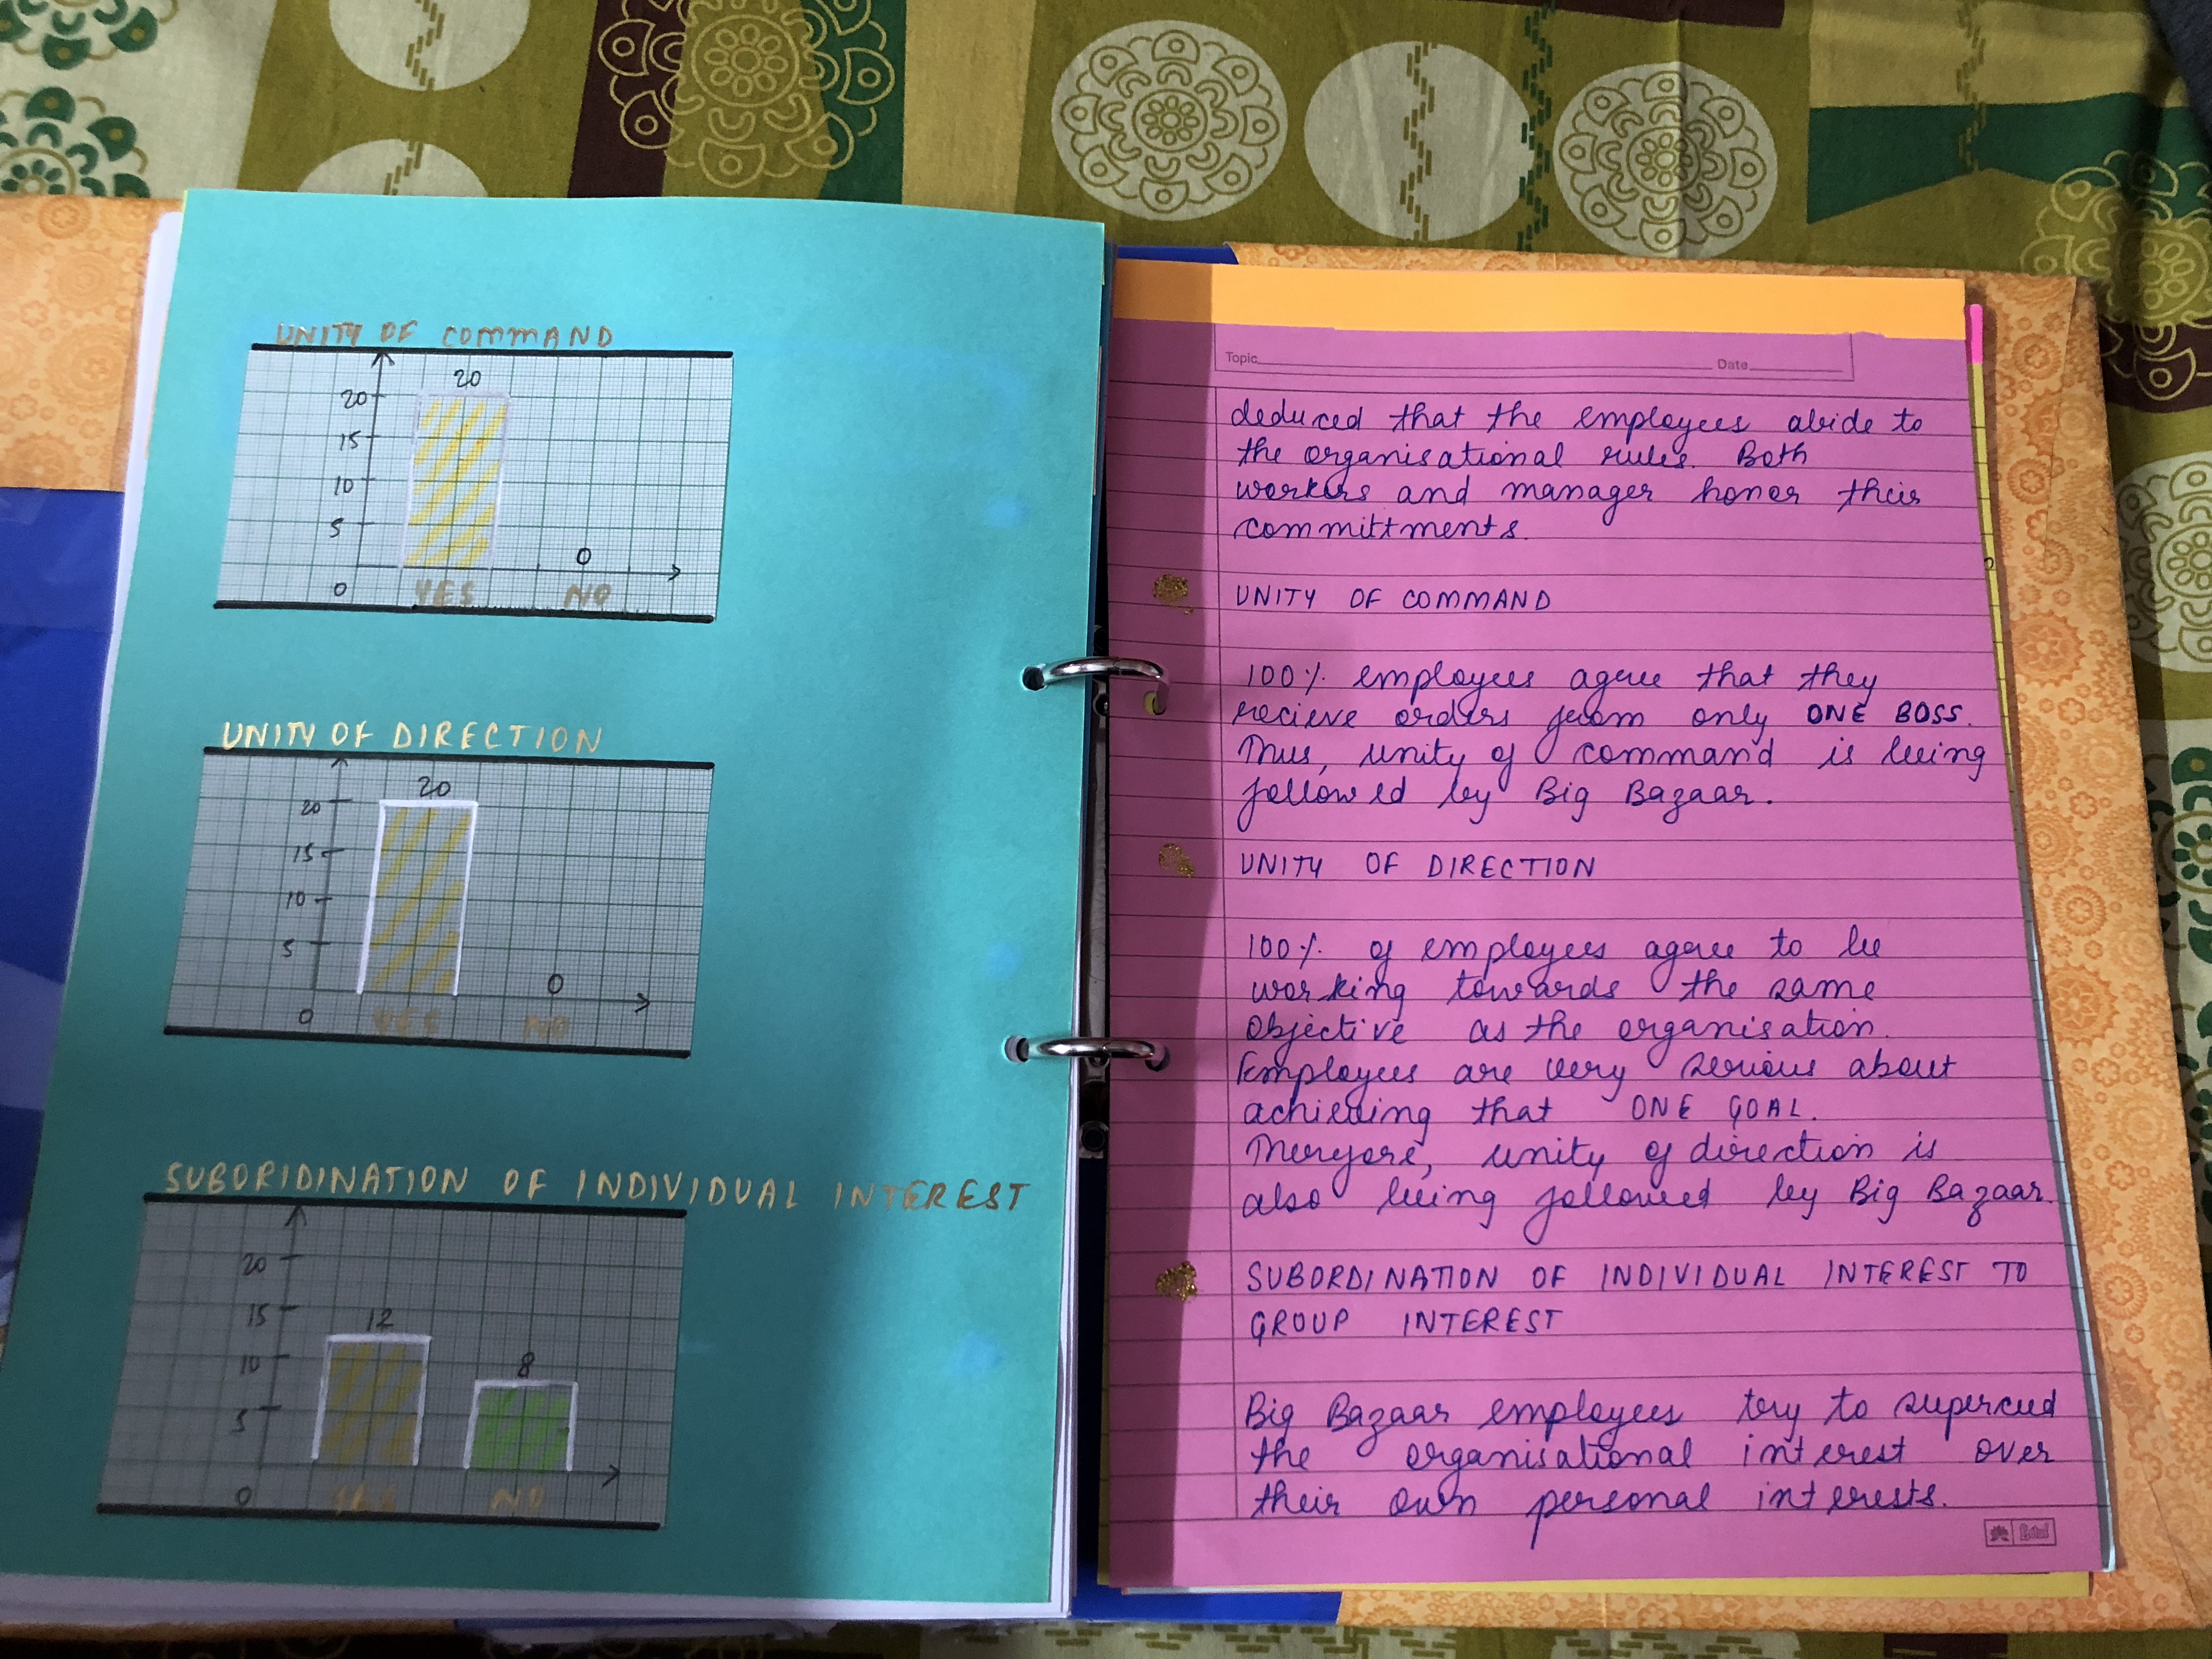 UNITY OF COMMAND
20
20
15
10
5
0
0
YES NO
UNITY OF DIRECTION
20
20
15
10
5
0
0
YES NO
SUBORIDINATION OF INDIVIDUAL INTEREST
20
15
12
10
8
5
0
YES NO
Topic Date
deduced that the employees abide to
the organisational rules. Both
workers and manager honor their
committments.
UNITY OF COMMAND
100% employees agree that they
recieve orders from only ONE BOSS.
Thus, unity of command is being
followed by Big Bazaar.
UNITY OF DIRECTION
100% of employees agree to be
working towards the same
objective as the organisation.
Employees are very serious about
achieving that ONE GOAL.
Therefore, unity of direction is
also being followed by Big Bazaar.
SUBORDINATION OF INDIVIDUAL INTEREST TO
GROUP INTEREST
Big Bazaar employees try to superced
the organisational interest over
their own personal interests.